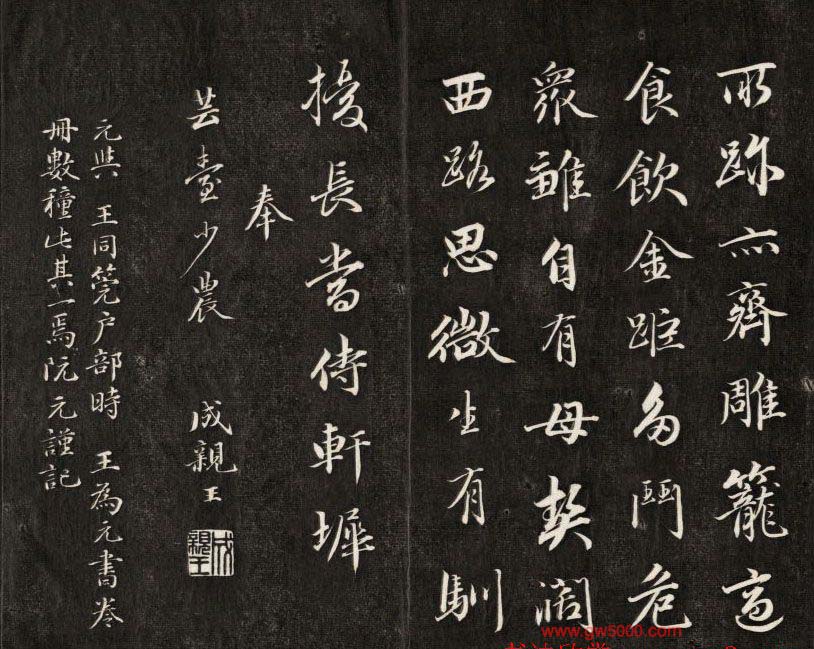 所跡亦齊雕籠高
食飲金距多鬥危
眾雛自有母契闊
西路思微生有馴
擾長當侍軒墀
奉
芸臺少農 成親王
成親王
元與 王同筦戶部時 王為元書卷
冊數種此其一焉阮元謹記
www.gw5000.com